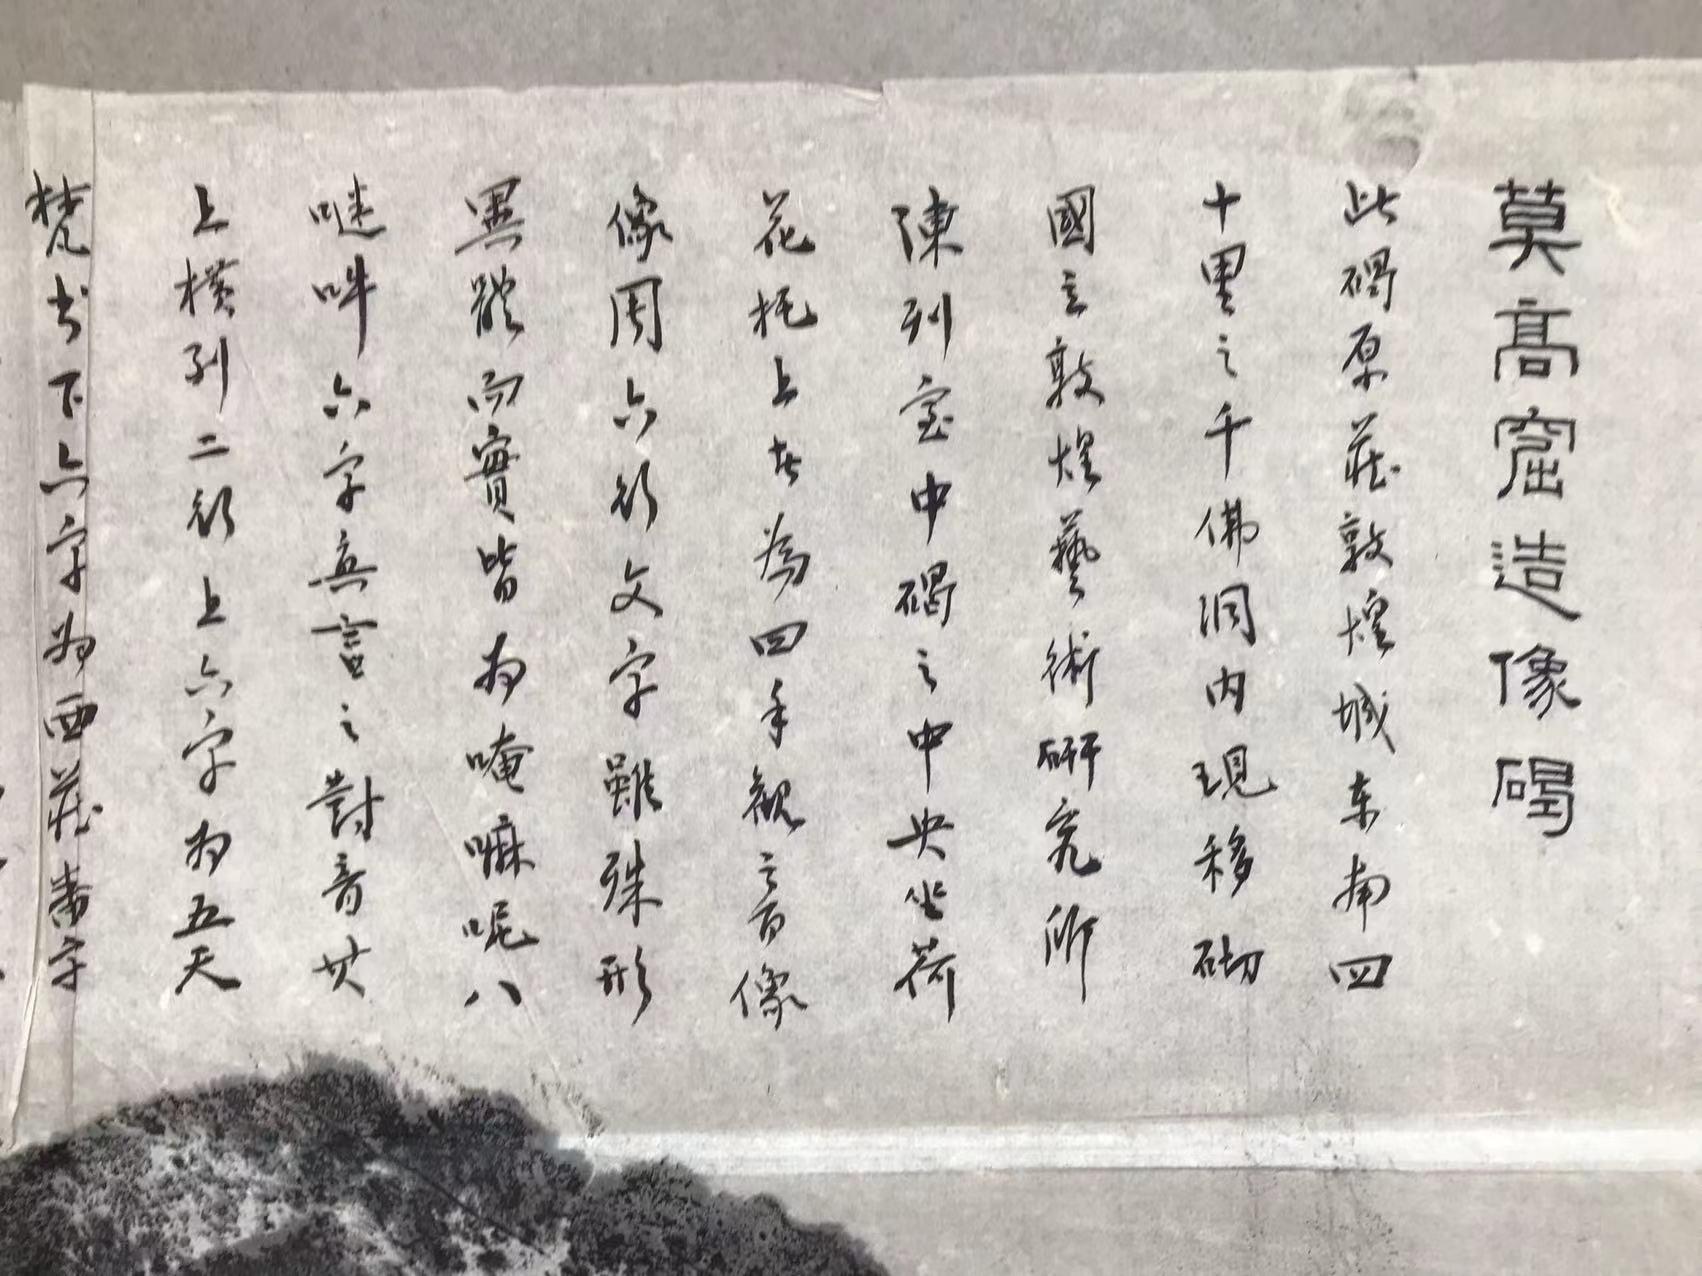 莫高窟造像碣
此碣原莊敦煌城东南四
十里之千佛洞内現移砌
國立敦煌藝術研究所
陳列室中碣之中央坐荷
花托上者為四手觀音像
像周六行文字雖殊形
異體而實皆为唵嘛呢八
𠺗吽六字真言之對音其
上橫列二行上六字为五天
梵书下六字为西莊番字